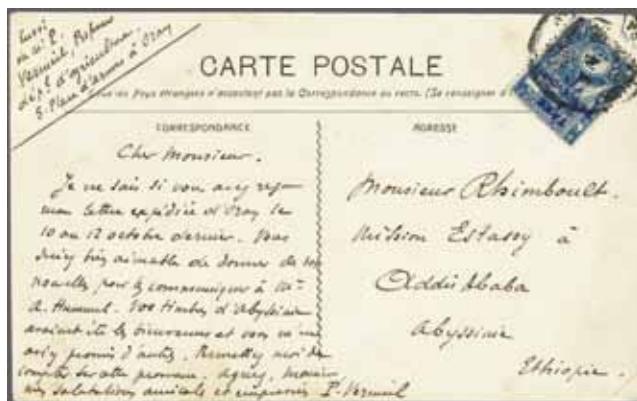 Vermeil, Profess
dépt d'agriculture
8. Place d'armes à Oran
CARTE POSTALE
Tous les Pays étrangers n'acceptent pas la Correspondance au recto. (Se renseigner
CORRESPONDANCE
ADRESSE
Cher Monsieur.
Je ne sais si vous avez reçu
mon lettre expédiée d'Oran le
10 au 12 octobre dernier. Vous
bien aimable de donner de vos
nouvelles pour les communiquer à
A. Vos timbres d'Abyssinie
avaient été les bienvenus et vous
aviez promis d'autres. Permettez moi de
compter sur cette promesse. Agréez, Monsieur
mes salutations amicales et empressées P. Vermeil
Monsieur Rhimboult.
Mission à
Addis Ababa
Abyssinie
Ethiopie.